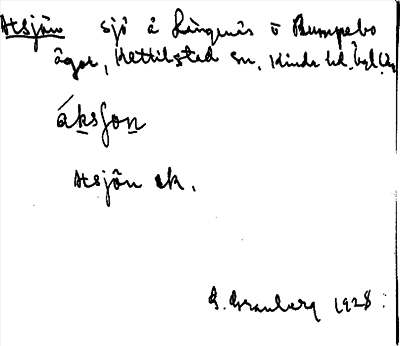 Atsjön sjö å Långnäs o Rumpebo
ägor, Kettilstad sn. Kinda hd.
áksjon
Atsjön ek.
G. Granberg 1928